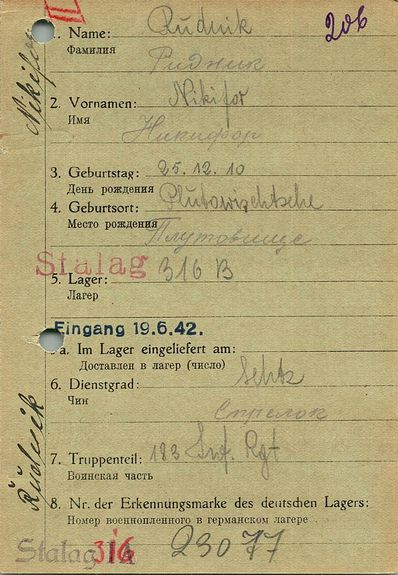 206
1. Name: Rudnik
Фамилия
Ридник
2. Vornamen: Nikifor
Имя
Никифор
3. Geburtstag: 25.12.10
День рождения
4. Geburtsort: Plutowischtsche
Место рождения
Плутовище
Stalag
5. Lager: 316 B
Лагер
Eingang 19.6.42.
a. Im Lager eingeliefert am:
Доставлен в лагер (число)
6. Dienstgrad: Schtz
Чин
Стрелок
7. Truppenteil: 183 Inf. Rgt
Воинская часть
8. Nr. der Erkennungsmarke des deutschen Lagers:
Номер военнопленного в германском лагере
Stalag 316 23077
Nikifor
Rudnik